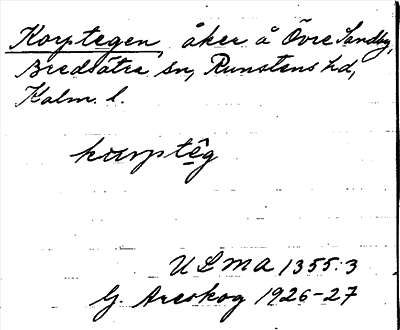 Korptegen, åker å Övre Sandby,
Bredsätra sn, Runstens hd,
Kalm. l.
kɑrptêg
ULMA 1355:3
G. Areskog 1926-27